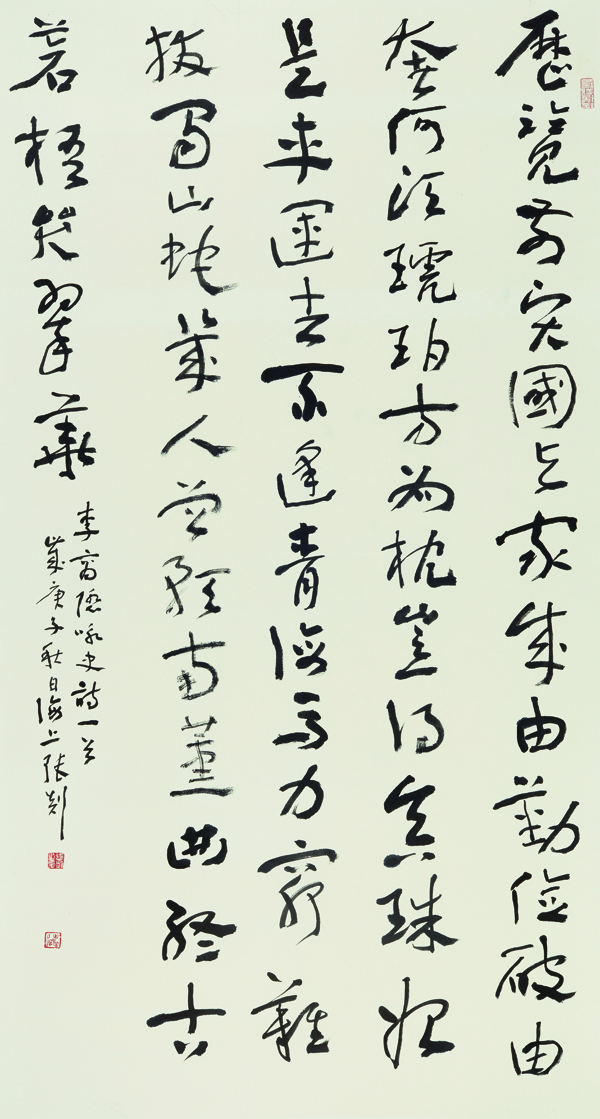 歷覽前賢國与家成由勤俭破由
奢何须琥珀方为枕岂得真珠始
是車運去不逢青海馬力窮難
拔蜀山蛇幾人曾預南薰曲終古
蒼梧哭翠華
李商隐咏史詩一首
歲庚子秋日海上張剡